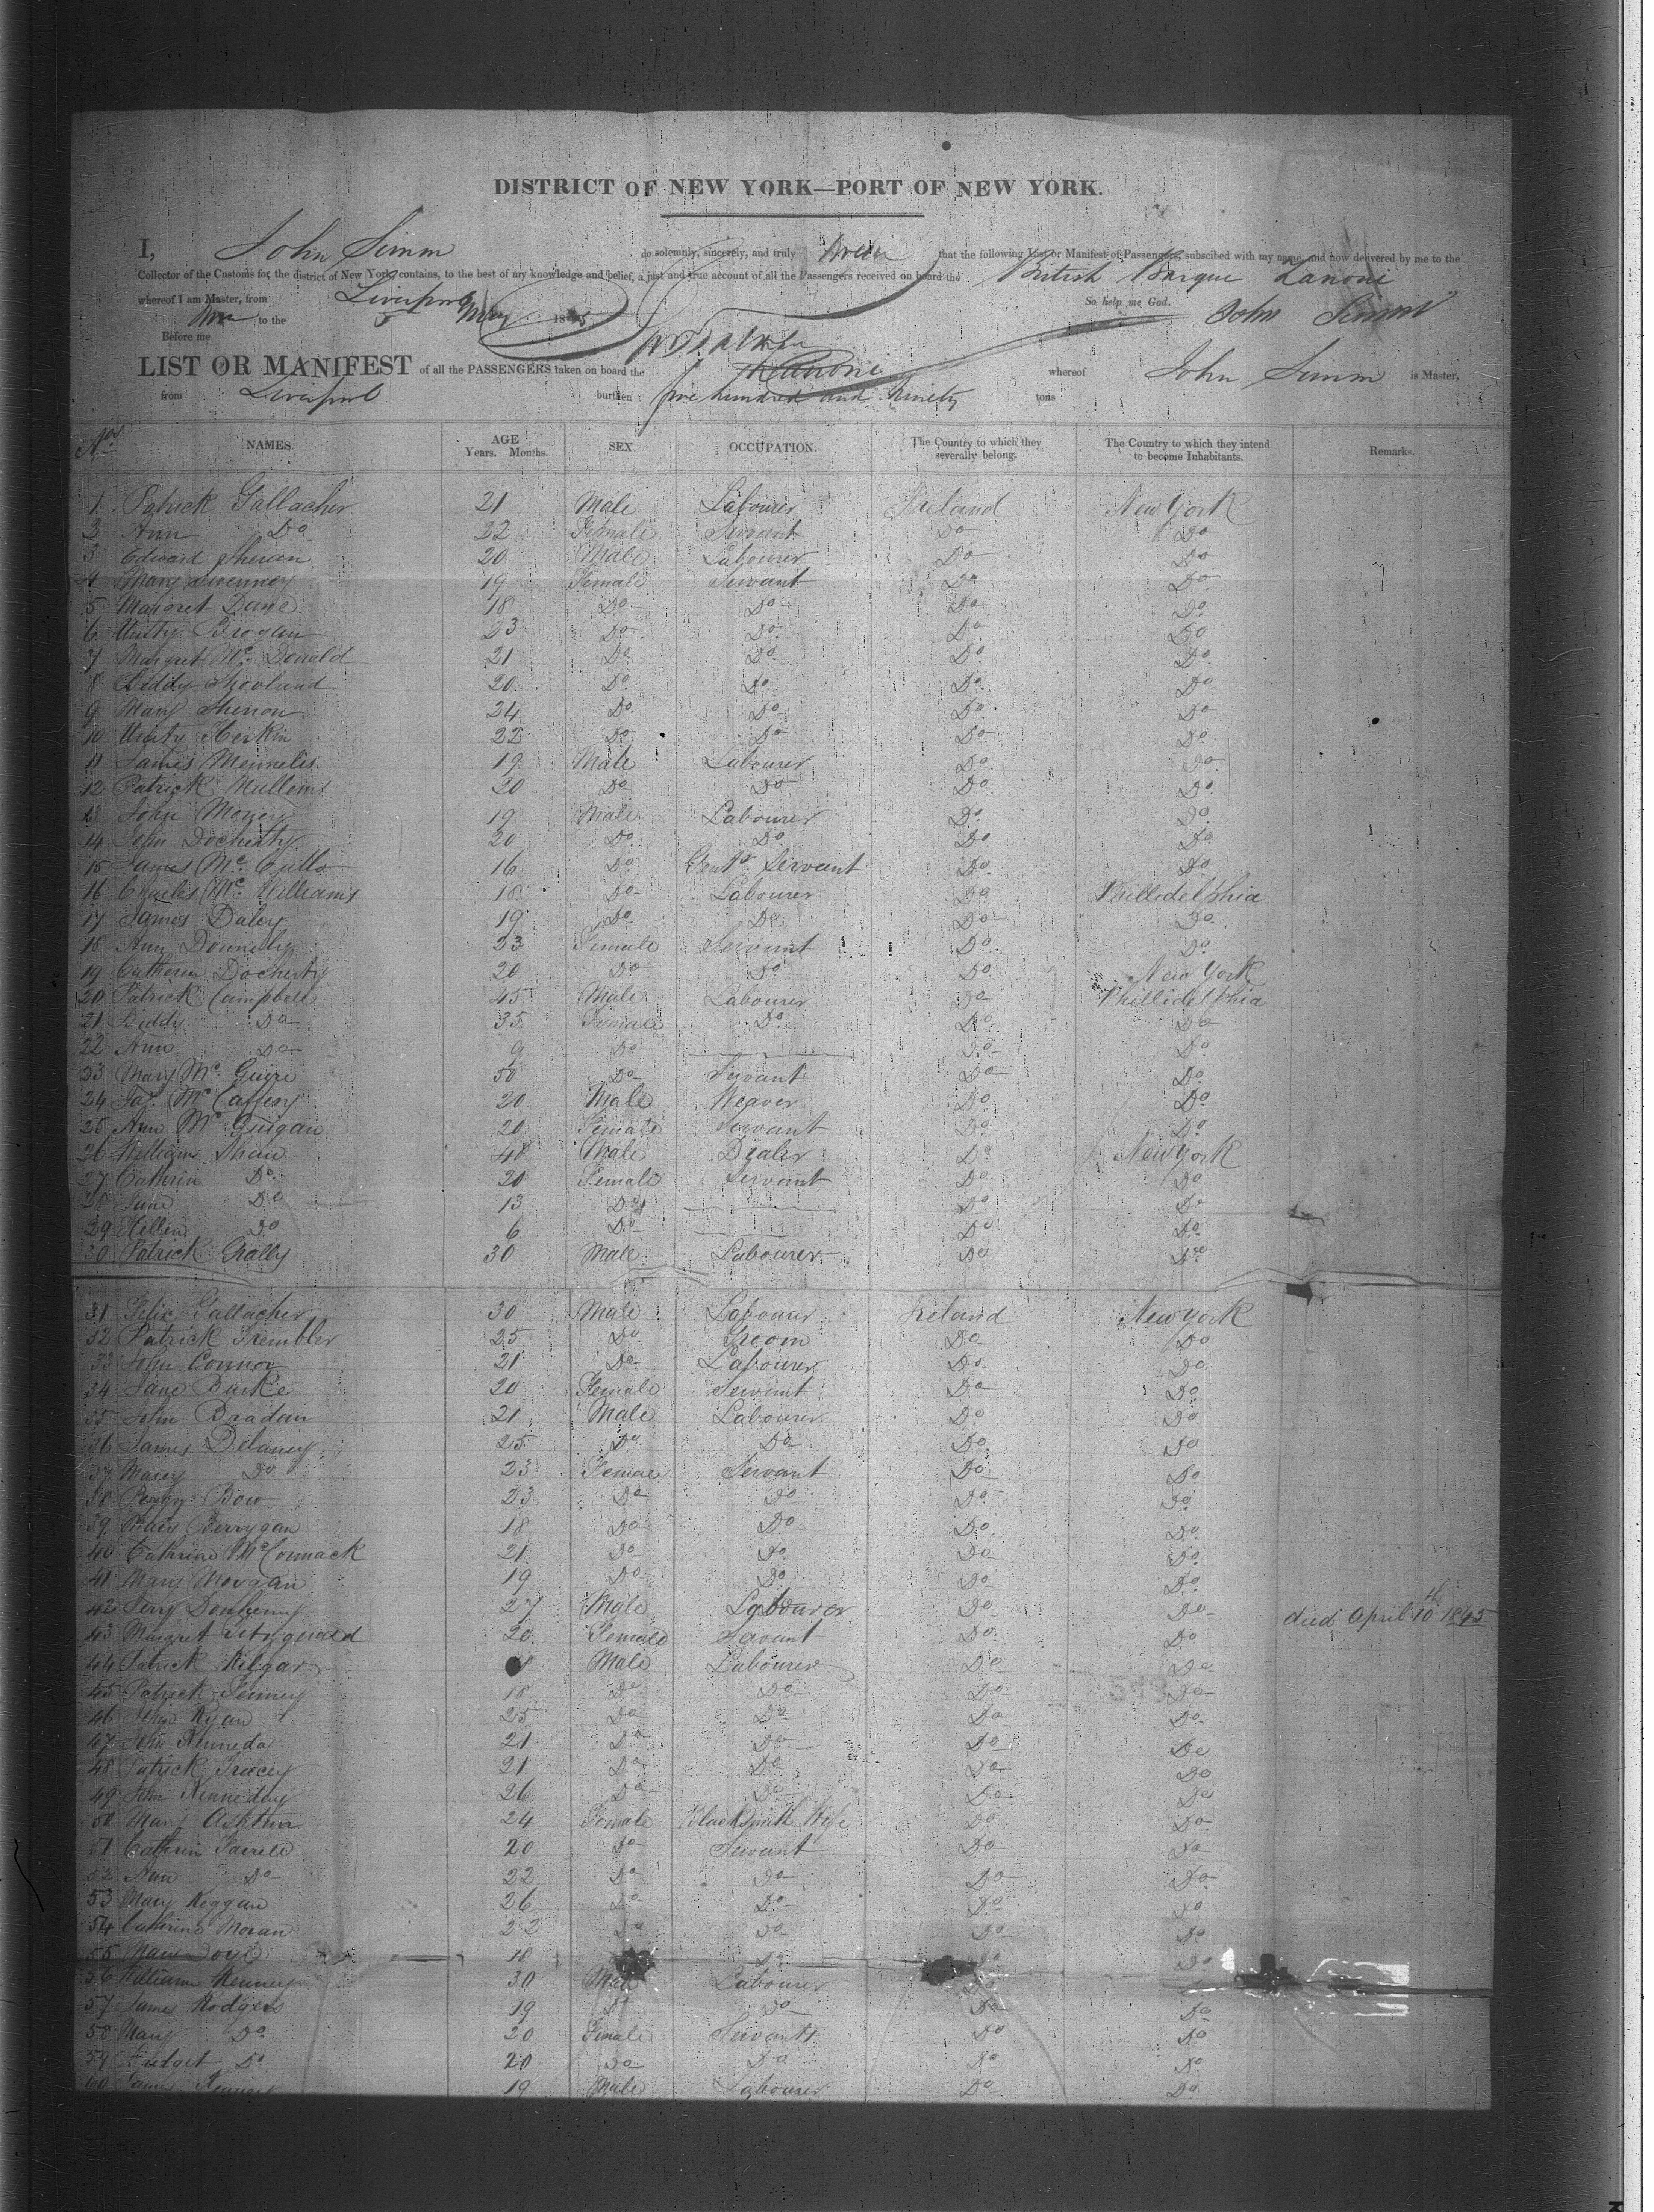 DISTRICT OF NEW YORK—PORT OF NEW YORK.
I, John Simm do solemnly, sincerely, and truly that the following List or Manifest of Passengers, subscribed with my name, and now delivered by me to the
Collector of the Customs for the district of New York, contains, to the best of my knowledge and belief, a just and true account of all the Passengers received on board the British Barque Zanoni
whereof I am Master, from Liverpool So help me God.
to the 5 May 1845 John Simm
Before me
LIST OR MANIFEST of all the PASSENGERS taken on board the Zanoni whereof John Simm is Master,
from Liverpool burthen five hundred and Ninety tons
Nos NAMES. AGE Years. Months. SEX. OCCUPATION. The Country to which they severally belong. The Country to which they intend to become Inhabitants. Remarks.
1 Patrick Gallacher 21 Male Labourer Ireland New York
2 Ann Do 22 Female Servant Do Do
3 Edward Sheran 20 Male Labourer Do Do
4 Mary Sweeney 19 Female Servant Do Do
5 Margret Dune 18 Do Do Do Do
6 Unity Brogan 23 Do Do Do Do
7 Margret Mc Donald 21 Do Do Do Do
8 Biddy 20 Do Do Do Do
9 Mary Shenon 24 Do Do Do Do
10 Unity Herkin 22 Do Do Do Do
11 James 19 Male Labourer Do Do
12 Patrick Mullems 20 Do Do Do Do
13 John 19 Male Labourer Do Do
14 John Docherty 20 Do Do Do Do
15 James Mc 16 Do Gents Servant Do Do
16 Charles Mc Williams 18 Do Labourer Do Phillidelphia
17 James Daley 19 Do Do Do Do
18 Ann Donnelly 33 Female Servant Do Do
19 Catheren Docherty 20 Do Do Do New York
20 Patrick Campbell 45 Male Labourer Do Phillidelphia
21 Biddy Do 35 Female Do Do Do
22 Ann Do 9 Do Do Do
23 Mary Mc Guire 50 Do Servant Do Do
24 Jas Mc Caffery 20 Male Weaver Do Do
25 Ann Mc Guigan 20 Female Servant Do Do
26 William Shaw 40 Male Dealer Do New York
27 Cathrin Do 20 Female Servant Do Do
28 Jane Do 13 Do Do Do
29 Hellen Do 6 Do Do Do
30 Patrick 30 Male Labourer Do Do
31 Felix Gallacher 30 Male Labourer Ireland New York
32 Patrick Trembler 25 Do Groom Do Do
33 John Connor 21 Do Labourer Do Do
34 Jane Burke 20 Female Servant Do Do
35 John Bradan 21 Male Labourer Do Do
36 James Delaney 25 Do Do Do Do
37 Marey Do 23 Female Servant Do Do
38 Peggy Bow 23 Do Do Do Do
39 Mary Berrygan 18 Do Do Do Do
40 Cathrine McCormack 21 Do Do Do Do
41 Mary Morgan 19 Do Do Do Do
42 27 Male Labourer Do Do died April 10th 1845
43 Margret 20 Female Servant Do Do
44 Patrick Kilgar Male Labourer Do Do
45 Patrick 18 Do Do Do Do
46 John Ryan 25 Do Do Do Do
47 John Kenneda 21 Do Do Do Do
48 Patrick Tracey 21 Do Do Do Do
49 John Kenneday 26 Do Do Do Do
50 Mary Ashton 24 Female Blacksmith Wife Do Do
51 Cathrin Farrele 20 Do Servant Do Do
52 Ann Do 22 Do Do Do Do
53 Mary Keggan 26 Do Do Do Do
54 Cathrine Moran 22 Do Do Do Do
55 Mary Doyle 18 Do Do Do
56 William Kenney 30 Male Labourer
57 James Rodgers 19 Do Do Do Do
58 Mary Do 20 Female Servants Do Do
59 Do 20 Do Do Do Do
60 James 19 Male Labourer Do Do